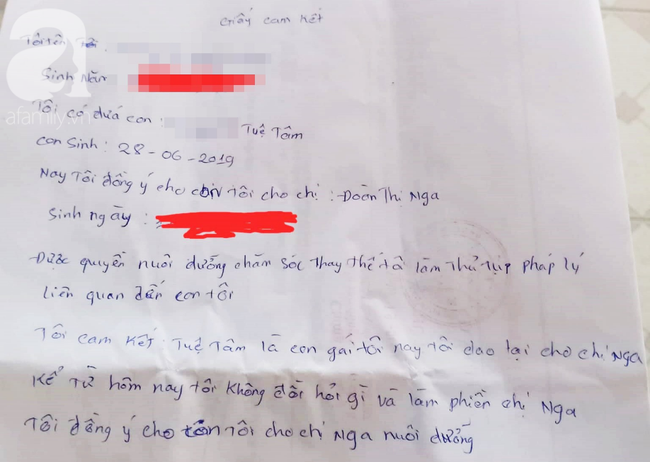 Giấy cam kết
Tôi tên
Sinh năm
Tôi có đứa con : Tuệ Tâm
con sinh : 28-06-2019
Nay tôi đồng ý cho con tôi cho chị : Đoàn Thị Nga
Sinh ngày :
Được quyền nuôi dưỡng chăm sóc thay thế tôi làm thủ tục pháp lý
liên quan đến con tôi
Tôi cam kết Tuệ Tâm là con gái tôi nay tôi dao lại cho chị Nga
Kể từ hôm nay tôi không đòi hỏi gì và làm phiền chị Nga
Tôi đồng ý cho con tôi cho chị Nga nuôi dưỡng
a
afamily.vn